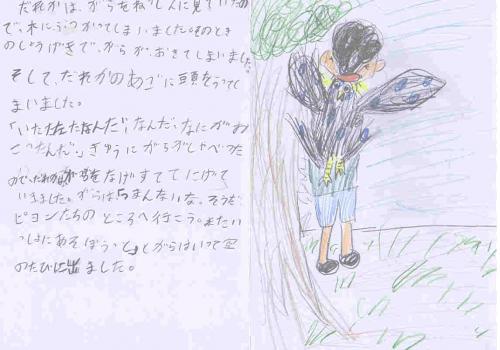 だれかは、がらをねっしんに見ていたの
で、木にぶつかってしまいました。そのとき
のしょうげきで、がらが、おきてしまいました
そして、だれかのあごに頭をうって
しまいました。
「いたたたなんだ、なんだ、なにがお
こったんだ。」きゅうにがらがしゃべった
ので、だれかは をなげすててにげて
いきました。がらは「つまんないな。そうだ
ピョンたちのところへ行こう。またい
っしょにあそぼうっと」とがらはいって
のたびに出ました。